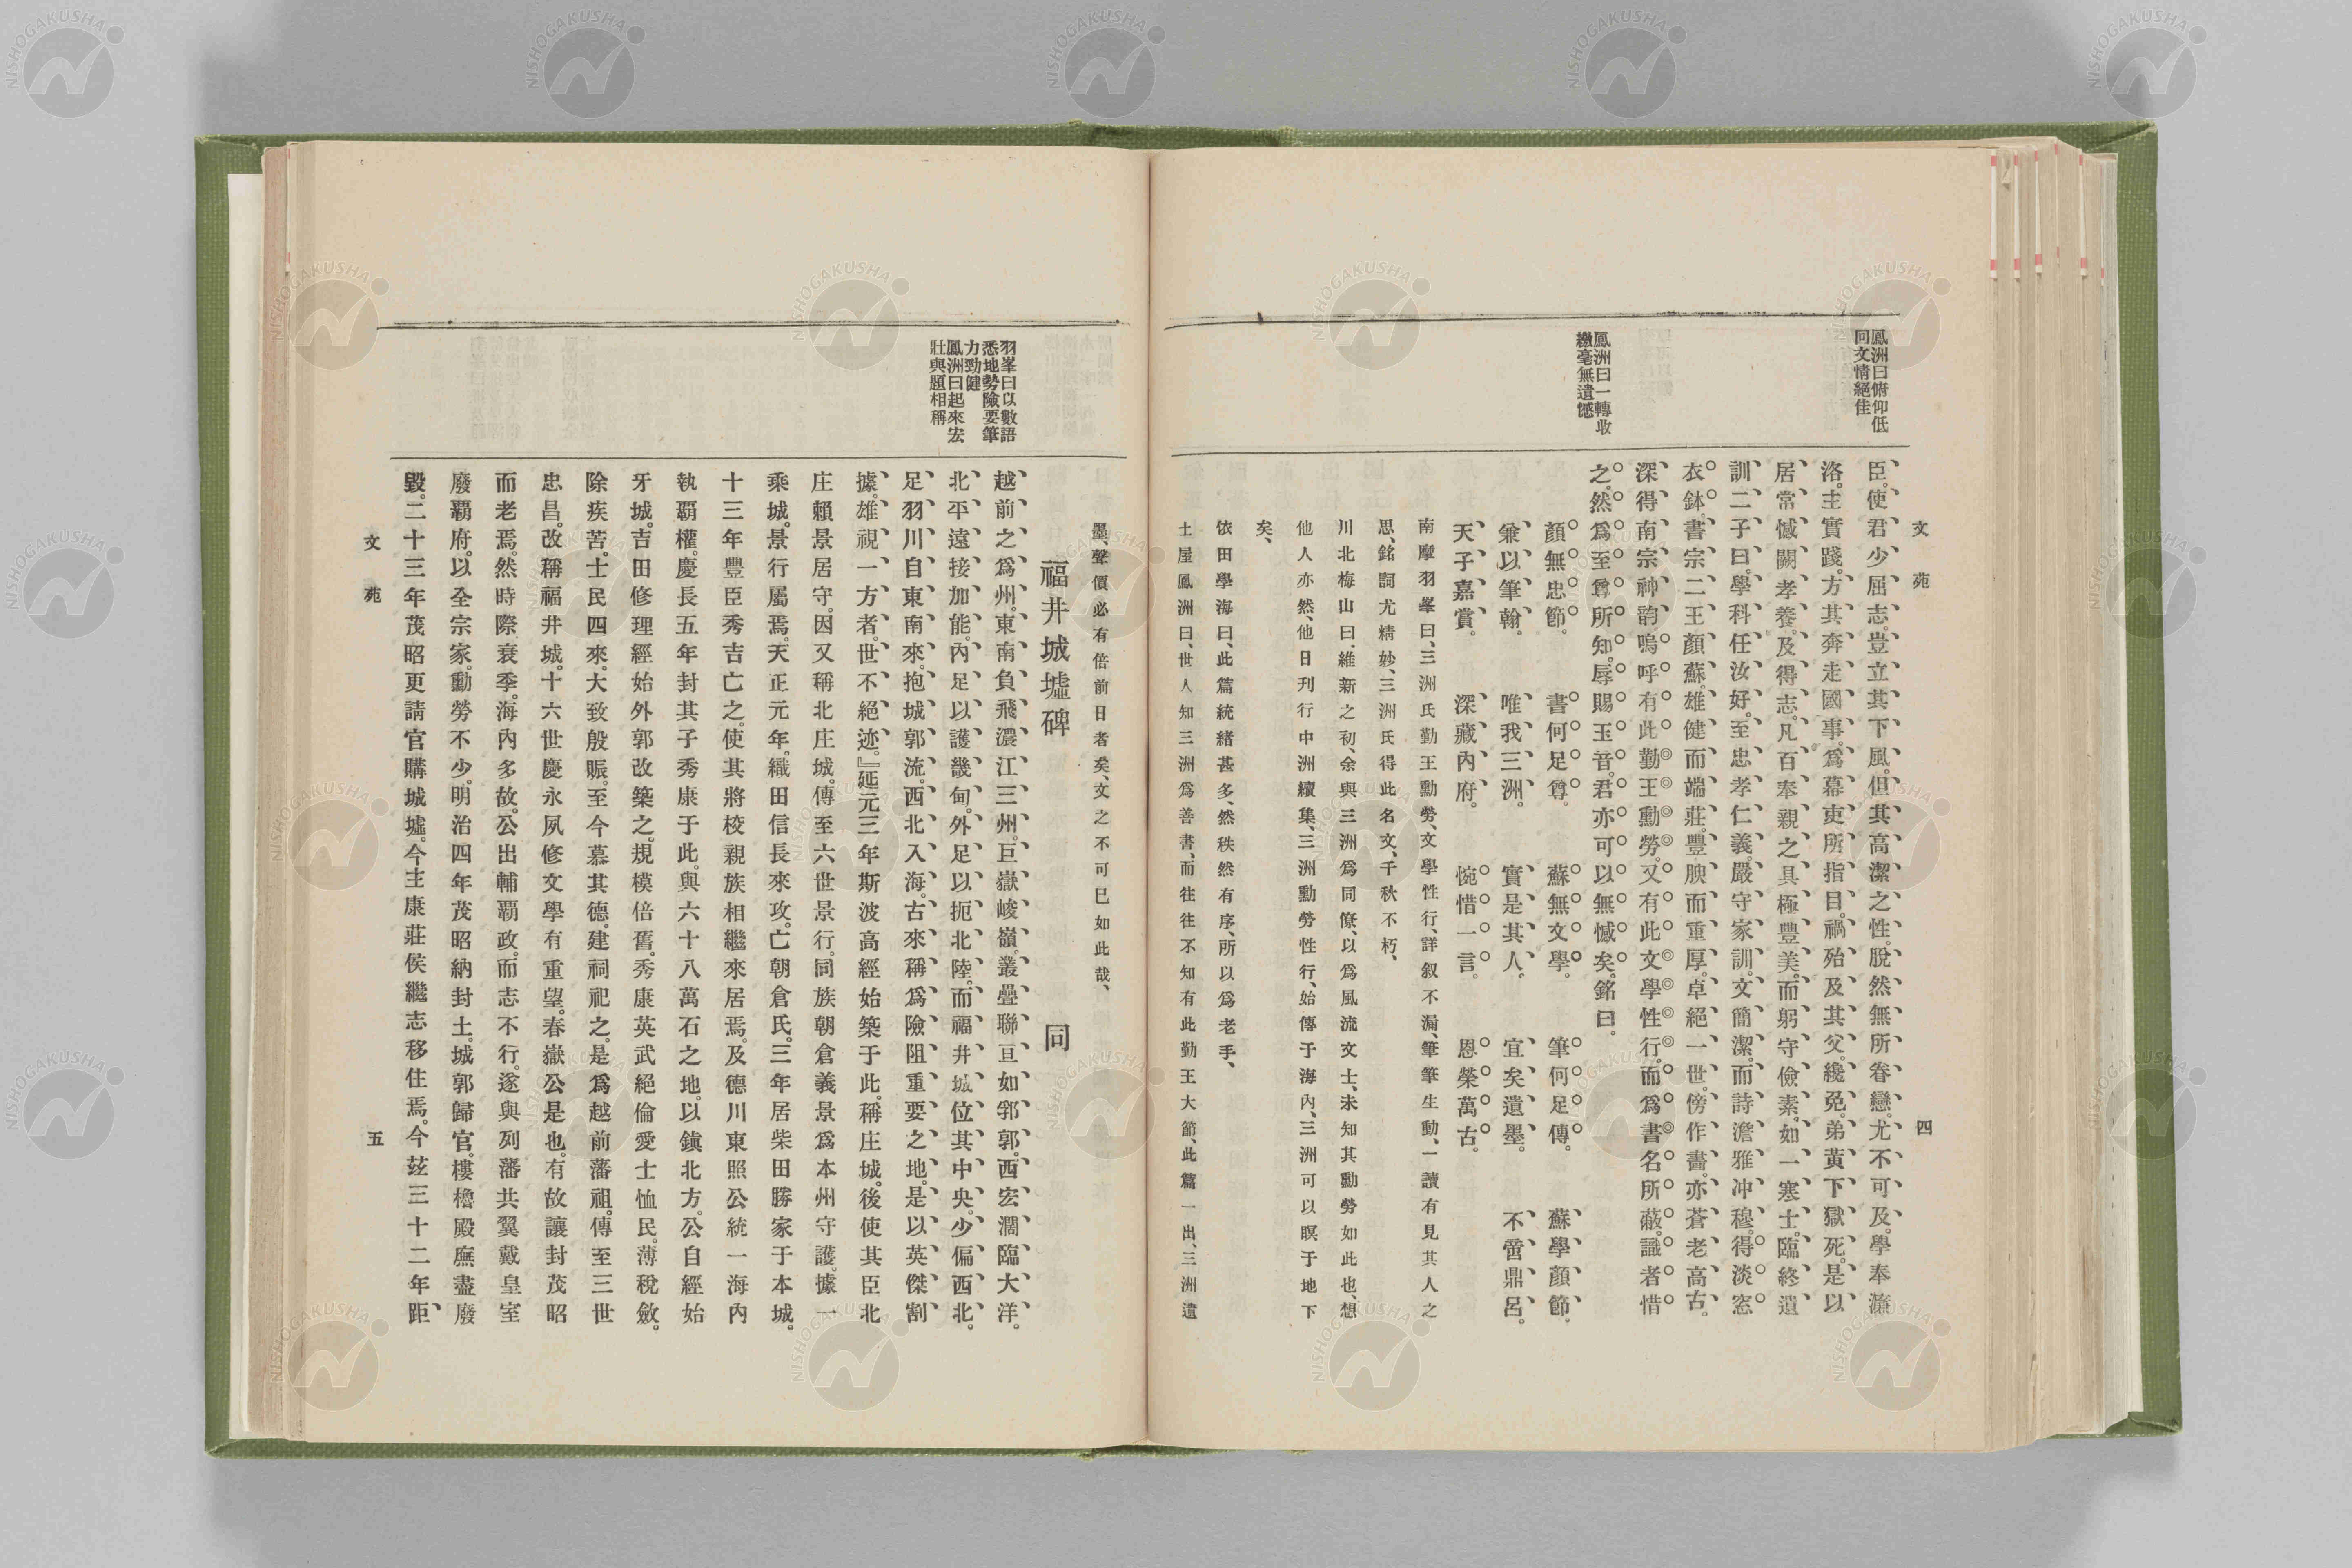 文苑 四
鳳洲曰俯仰低
回文情絕佳
鳳洲曰一轉收
繳毫無遺憾
臣使君少屈志。豈立其下風。但其高潔之性。脫然無所眷戀。尤不可及。學奉濂
洛。主實踐。方其奔走國事。爲幕吏所指目。禍殆及其父。纔免。弟黄下獄死。是以
居常憾闕孝養。及得志。凡百奉親之具極豐美。而躬守儉素。如一寒士。臨終遺
訓二子曰。學科任汝好。至忠孝仁義。嚴守家訓。文簡潔。而詩澹雅冲穆。得淡窓
衣鉢。書宗二王顏蘇。雄健而端莊。豐腴而重厚。卓絕一世。傍作畫。亦蒼老高古。
深得南宗神韵。嗚呼有此勤王勳勞。又有此文學性行。而爲書名所蔽。識者惜
之。然爲至尊所知。辱賜玉音。君亦可以無憾矣。銘曰。
顏無忠節。 書何足尊。 蘇無文學。 筆何足傳。 蘇學顏節。
兼以筆翰。 唯我三洲。 實是其人。 宜矣遺墨。 不啻鼎呂。
天子嘉賞。 深藏內府。 惋惜一言。 恩榮萬古。
南摩羽峯曰、三洲氏勤王勳勞、文學性行、詳叙不漏、筆筆生動、一讀有見其人之
思、銘詞尤精妙、三洲氏得此名文、千秋不朽、
川北梅山曰、維新之初、余與三洲爲同僚、以爲風流文士、未知其勳勞如此也、想
他人亦然、他日刊行中洲續集、三洲勳勞性行、始傳于海內、三洲可以瞑于地下
矣、
依田學海曰、此篇統緖甚多、然秩然有序、所以爲老手、
土屋鳳洲曰、世人知三洲爲善書、而往往不知有此勤王大節、此篇一出、三洲遺
墨、聲價必有倍前日者矣、文之不可已如此哉、
福井城墟碑 同
羽峯曰以數語
悉地勢險要筆
力勁健
鳳洲曰起來宏
壯與題相稱
越前之爲州。東南負飛濃江三州。巨嶽峻嶺。叢疊聯亘如郛郭。西宏濶臨大洋。
北平遠接加能。內足以護畿甸。外足以扼北陸。而福井城位其中央。少偏西北。
足羽川自東南來。抱城郭流。西北入海。古來稱爲險阻重要之地。是以英傑割
據。雄視一方者。世不絕迹。』延元三年斯波高經始築于此。稱庄城。後使其臣北
庄賴景居守。因又稱北庄城。傳至六世景行。同族朝倉義景爲本州守護。據一
乘城。景行屬焉。天正元年。織田信長來攻。亡朝倉氏。三年居柴田勝家于本城。
十三年豐臣秀吉亡之。使其將校親族相繼來居焉。及德川東照公統一海內
執覇權。慶長五年封其子秀康于此。與六十八萬石之地。以鎭北方。公自經始
牙城。吉田修理經始外郭改築之。規模倍舊。秀康英武絕倫愛士恤民。薄稅斂。
除疾苦。士民四來。大致殷賑。至今慕其德。建祠祀之。是爲越前藩祖。傳至三世
忠昌。改稱福井城。十六世慶永夙修文學有重望。春嶽公是也。有故讓封茂昭
而老焉。然時際衰季。海內多故。公出輔覇政。而志不行。遂與列藩共翼戴皇室
廢覇府。以全宗家。動勞不少。明治四年茂昭納封土。城郭歸官。樓櫓殿廡盡廢
毀。二十三年茂昭更請官購城墟。今主康莊侯繼志移住焉。今玆三十二年距
文苑 五